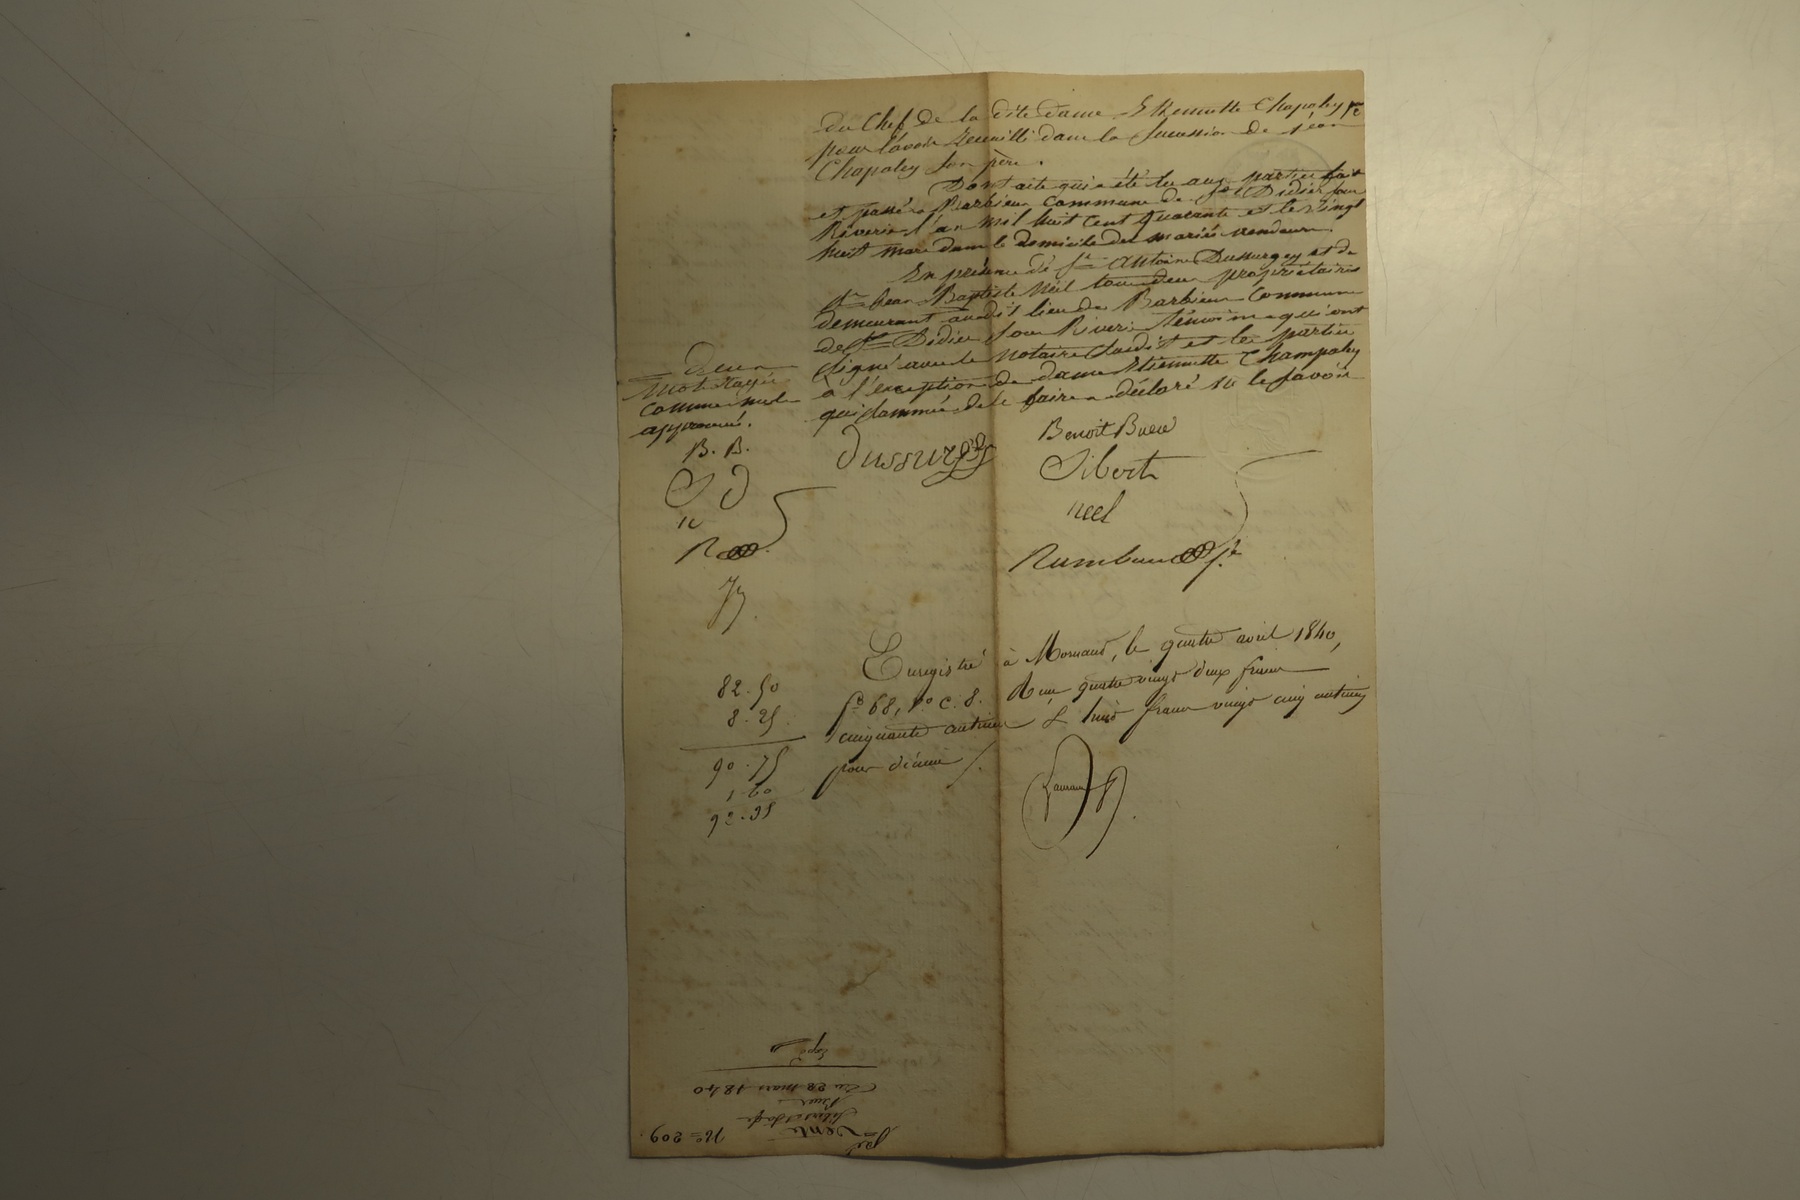 du Chef de la dite dame Etiennette Chapoley
pour l'avoir recueilli dans la succession de jean
Chapoley son père.
Dont acte qui a été lu aux parties fait
et passé à Barbieux commune de St Didier sous
Riverie l'an mil huit cent quarante et le vingt
huit mars dans le domicile des mariés vendeurs.
En présence de Sr Antoine Dussurgey et de
Sr Jean Baptiste Néel tous deux propriétaires
demeurant audit lieu de Barbieux Commune
de St Didier sous Riverie témoins qui ont
signé avec le notaire susdit et les parties
à l'exception de dame Etiennette Champoley
qui sommée de le faire a déclaré ne le savoir
Deux
mots rayés
comme nuls
approuvés.
B. B.
S D
N
R
Dussurgey
Benoit Buer
Sibert
neel
Enregistré à Mornant, le quatre avril 1840,
fo 68, Ro c. 8. Reçu quatre vingt deux francs
cinquante centimes & huit francs vingt cinq centimes
pour décime /.
82.50
8.25
90.75
1.60
92.35
No 209
Vente
Du 28 mars 1840
Expd